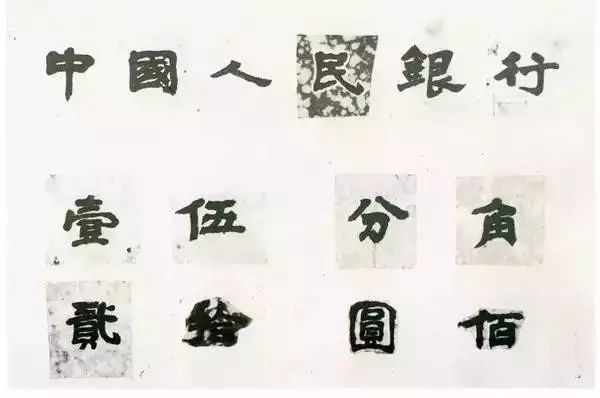 中國人民銀行
壹伍分角
貳拾圓佰